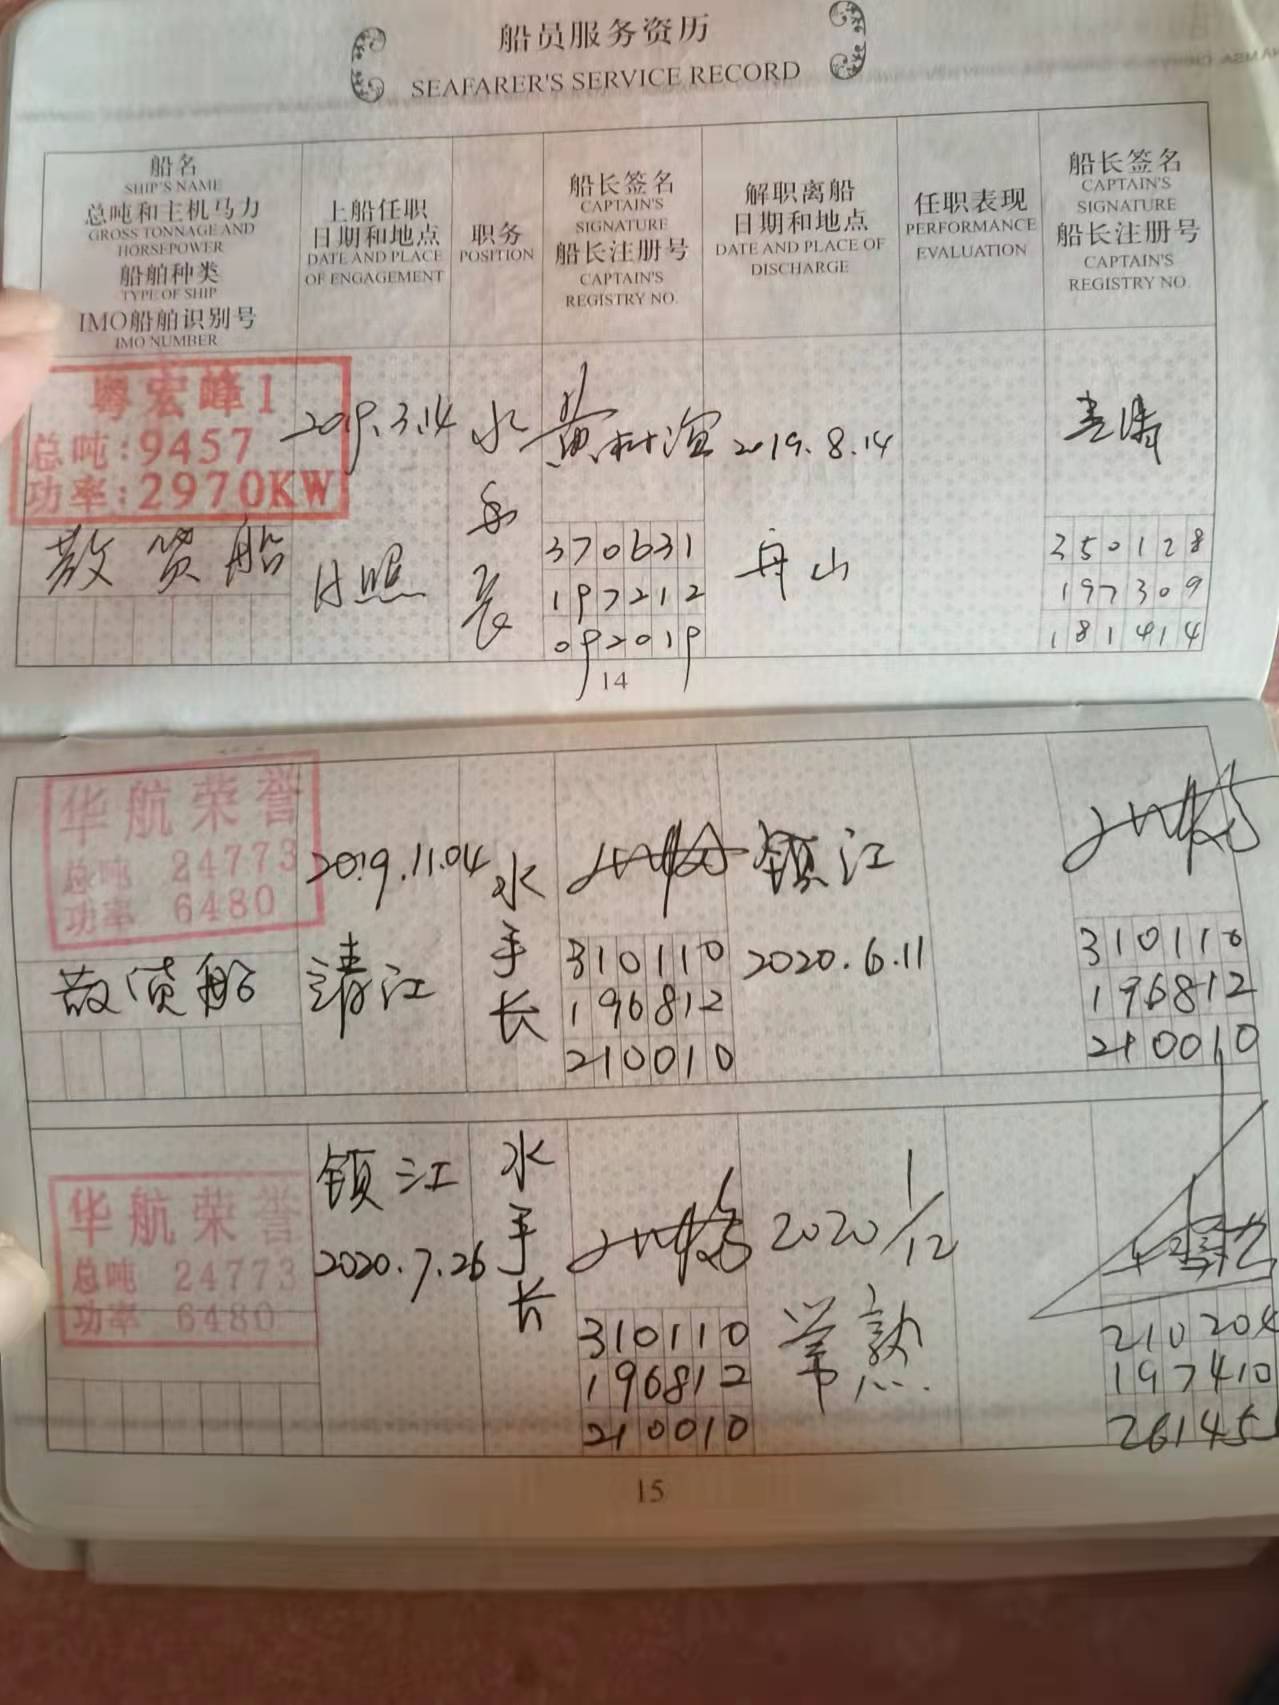 船员服务资历
SEAFARER'S SERVICE RECORD
船名
SHIP'S NAME
总吨和主机马力
GROSS TONNAGE AND
HORSEPOWER
船舶种类
TYPE OF SHIP
IMO船舶识别号
IMO NUMBER
上船任职
日期和地点
DATE AND PLACE
OF ENGAGEMENT
职务
POSITION
船长签名
CAPTAIN'S
SIGNATURE
船长注册号
CAPTAIN'S
REGISTRY NO.
解职离船
日期和地点
DATE AND PLACE OF
DISCHARGE
任职表现
PERFORMANCE
EVALUATION
船长签名
CAPTAIN'S
SIGNATURE
船长注册号
CAPTAIN'S
REGISTRY NO.
粤宏峰1
总吨:9457
功率:2970KW
散货船
2019.3.14
日照
水
手
长
370631
197212
092019
2019.8.14
舟山
350128
197309
181414
14
华航荣誉
总吨 24773
功率 6480
散货船
2019.11.04
靖江
水
手
长
310110
196812
210010
镇江
2020.6.11
310110
196812
210010
华航荣誉
总吨 24773
功率 6480
镇江
2020.7.26
水
手
长
310110
196812
210010
2020 1/12
常熟
210204
197410
261455
15